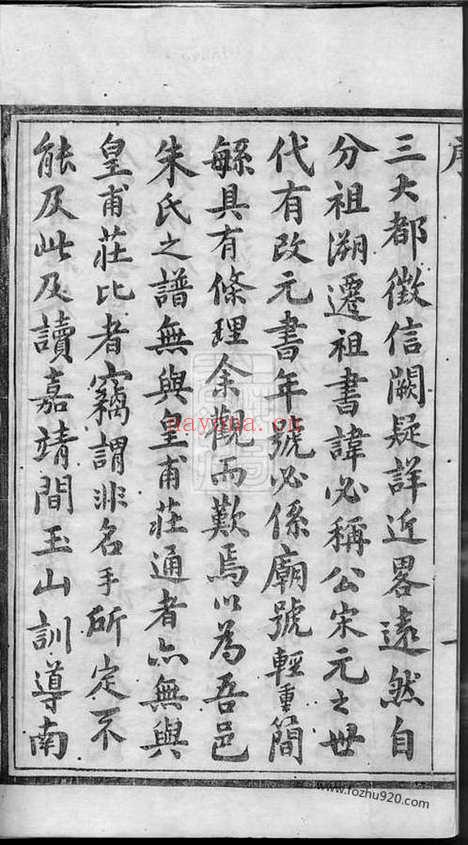 序
三大都徵信闕疑詳近畧遠然自
分祖溯遷祖書諱必稱公宋元之世
代有改元書年號必係廟號輕重簡
緐具有條理余觀而歎焉以為吾邑
朱氏之譜無與皇甫莊通者亦無與
皇甫莊比者竊謂非名手所定不
能及此及讀嘉靖間玉山訓導南
nayona.cn
www.fozhu920.com